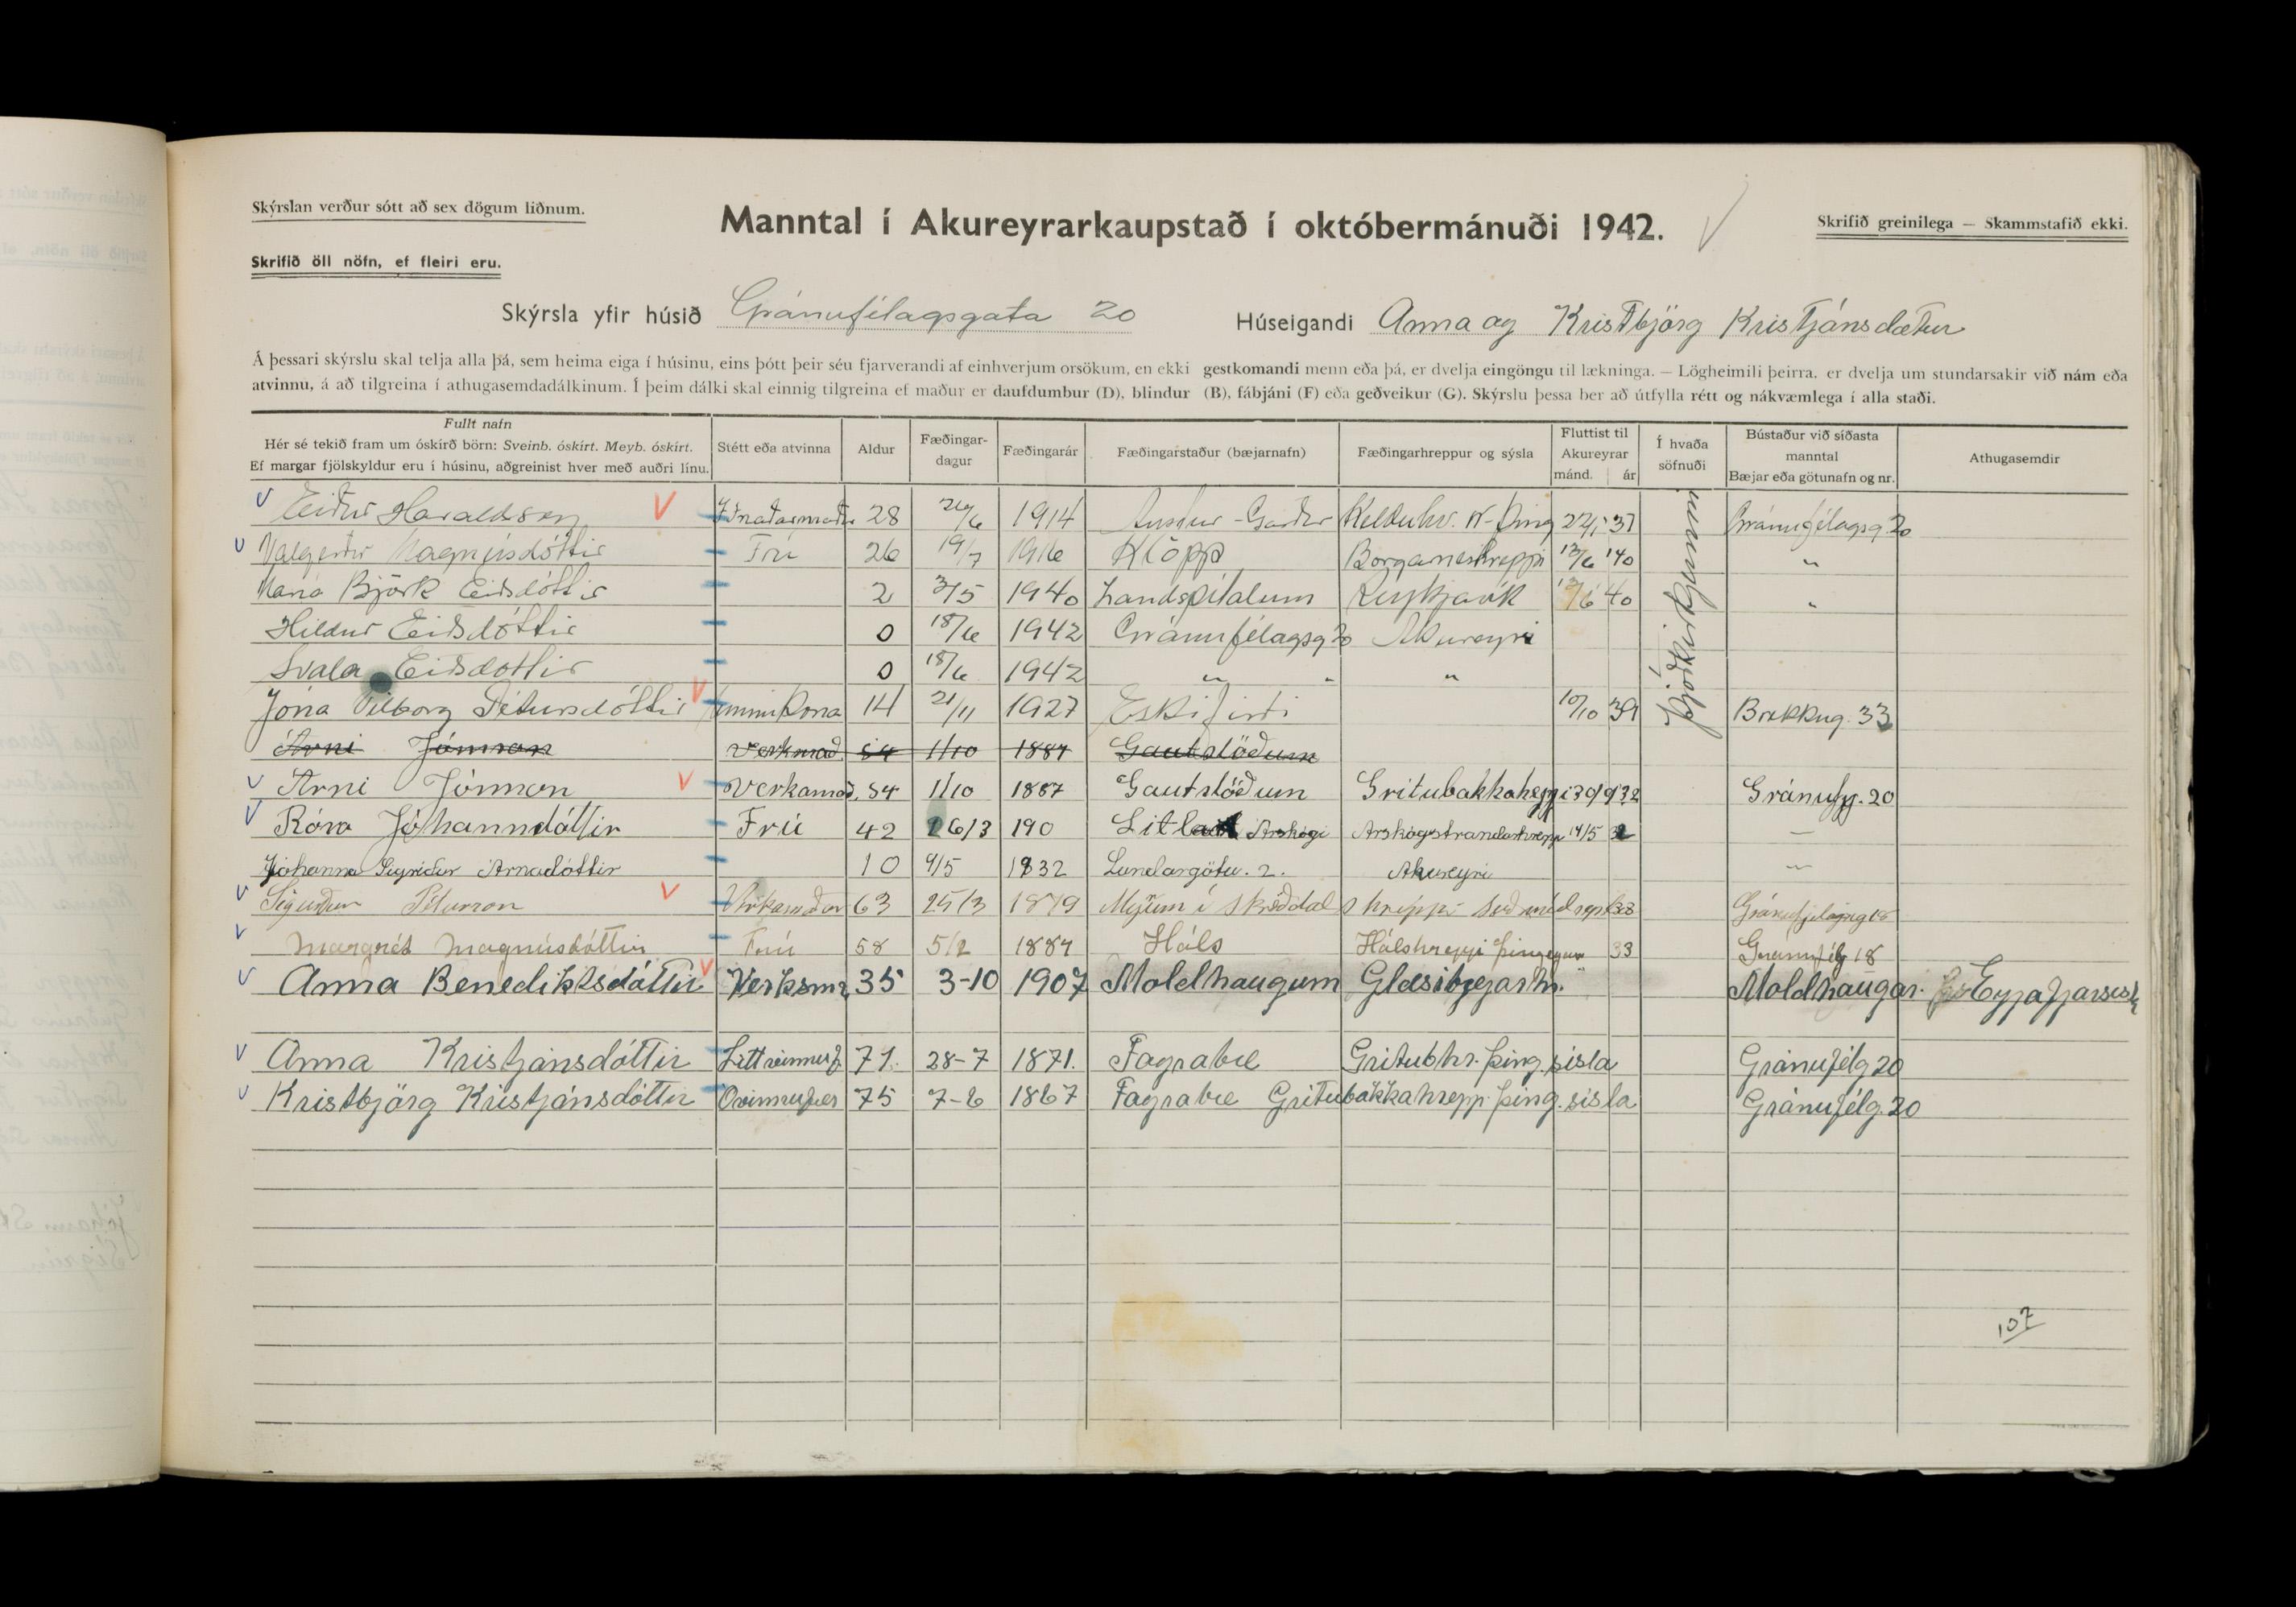 Skýrslan verður sótt að sex dögum liðnum.
Manntal í Akureyrarkaupstað í októbermánuði 1942. V
Skrifið greinilega — Skammstafið ekki.
Skrifið öll nöfn, ef fleiri eru.
Skýrsla yfir húsið Gránufélagsgata 20 Húseigandi Anna og Kristbjörg Kristjánsdætur
Á þessari skýrslu skal telja alla þá, sem heima eiga í húsinu, eins þótt þeir séu fjarverandi af einhverjum orsökum, en ekki gestkomandi menn eða þá, er dvelja eingöngu til lækninga. — Lögheimili þeirra. er dvelja um stundarsakir við nám eða
atvinnu, á að tilgreina í athugasemdadálkinum. Í þeim dálki skal einnig tilgreina ef maður er daufdumbur (D), blindur (B), fábjáni (F) eða geðveikur (G). Skýrslu þessa ber að útfylla rétt og nákvæmlega í alla staði.
Fullt nafn
Hér sé tekið fram um óskírð börn: Sveinb. óskírt. Meyb. óskírt.
Ef margar fjölskyldur eru í húsinu, aðgreinist hver með auðri línu.
Stétt eða atvinna
Aldur
Fæðingar-
dagur
Fæðingarár
Fæðingarstaður (bæjarnafn)
Fæðingarhreppur og sýsla
Fluttist til
Akureyrar
mánd. ár
Í hvaða
söfnuði
Bústaður við síðasta
manntal
Bæjar eða götunafn og nr.
Athugasemdir
V Eiður Haraldsson V 28 26/6 1914 Austur-Garður Kelduhv. N-Þing 22/1 '37 Gránufélagsg 20
V Valgerður Magnúsdóttir Frú 26 19/7 1916 Klöpp Borgarneshreppi 13/6 '40 "
María Björk Eiðsdóttir 2 3/5 1940 Landspítalum Reykjavík 13/6 40 "
Hildur Eiðsdóttir 0 18/6 1942 Gránufélagsg 20 Akureyri
Svala Eiðsdóttir 0 18/6 1942 " " "
Þjóðkirkjunni
Jóna Vilborg Pétursdóttir V 14 21/11 1927 Eskifirði 10/10 39 Brekkug. 33
Árni Jónsson Verkmað. 54 1/10 1887 Gautstöðum
V Árni Jónsson V Verkamað. 54 1/10 1887 Gautstöðum Gritubakkaheppi 30/9 32 Gránufg. 20
V Róra Jóhannsdóttir Frú 42 26/3 190 Litla Árskógi Arskógstrandarhrepp 14/5 32 —
Jóhanna Sigríður Arnadóttir 10 9/5 1932 Lundargötu. 2. Akureyri —
V Sigurður Pétursson V Verkamaður 63 25/3 1879 Mýrum í Skriðdals hreppi 38 Gránufjelagsg 18
V Margrét Magnúsdóttir Frú 58 5/2 1884 Háls Hálshreppi 33 Gránufélg 18
V Anna Benediktsdóttir V Verksm. 35 3-10 1907 Moldhaugum Glæsibæjarhr. " Moldhaugar. Eyjafjarsísl
V Anna Kristjánsdóttir 71. 28-7 1871. Fagrabæ Gritubhr. Þing. sísla Gránufélg 20
V Kristbjörg Kristjánsdóttir 75 7-6 1867 Fagrabæ Gritubakkahrepp. Þing. sísla Gránufélg. 20
107